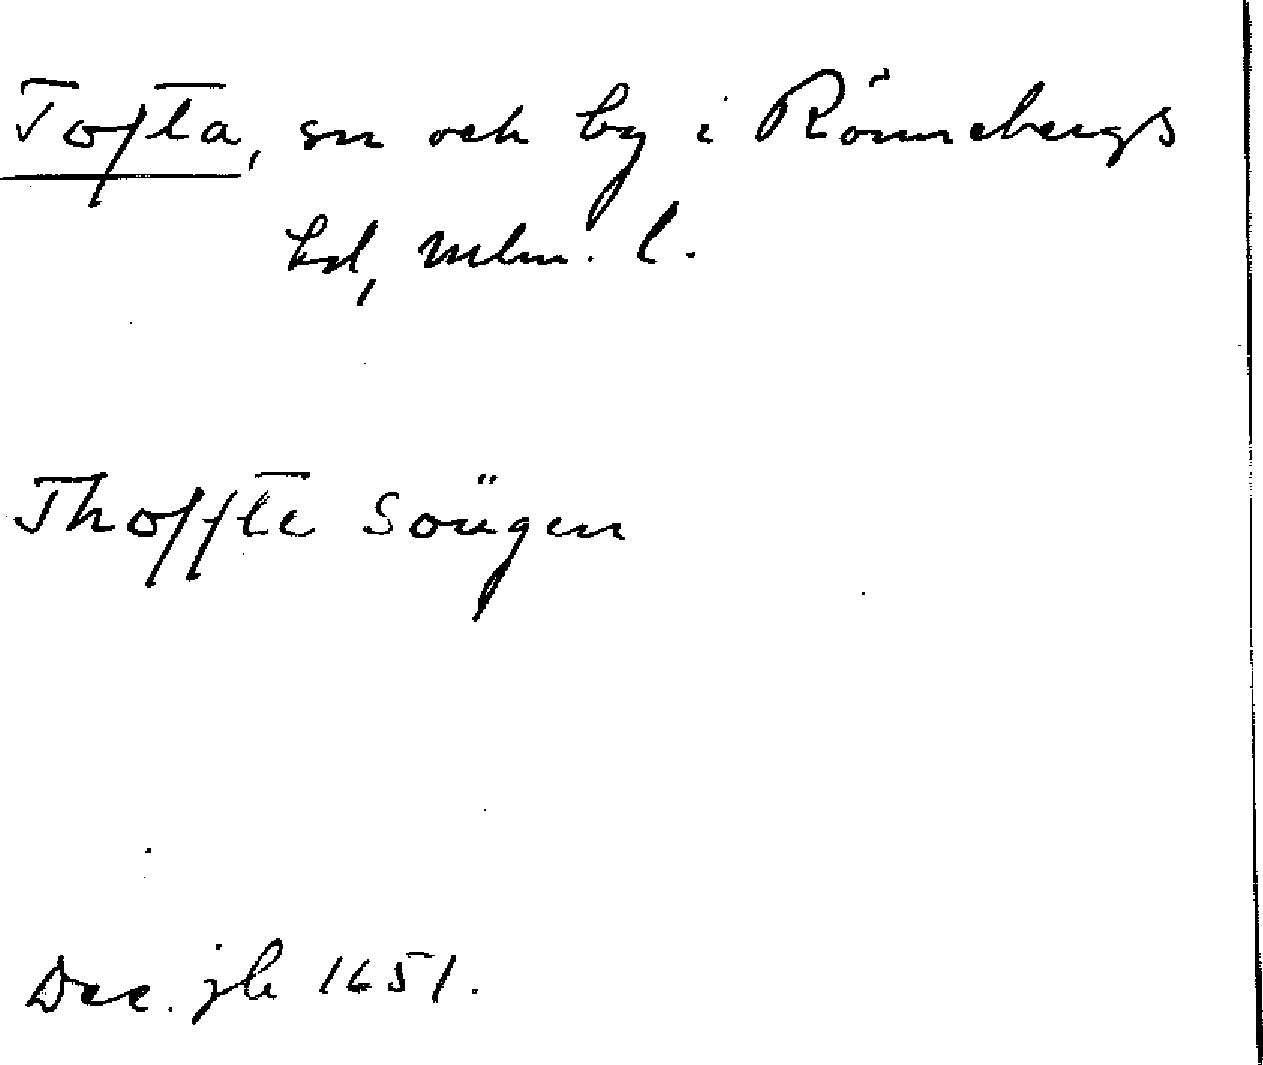 Tofta, sn och by i Rönnebergs
hd, Mlm. l.
Thoffte Soügen
Dec. jb 1651.